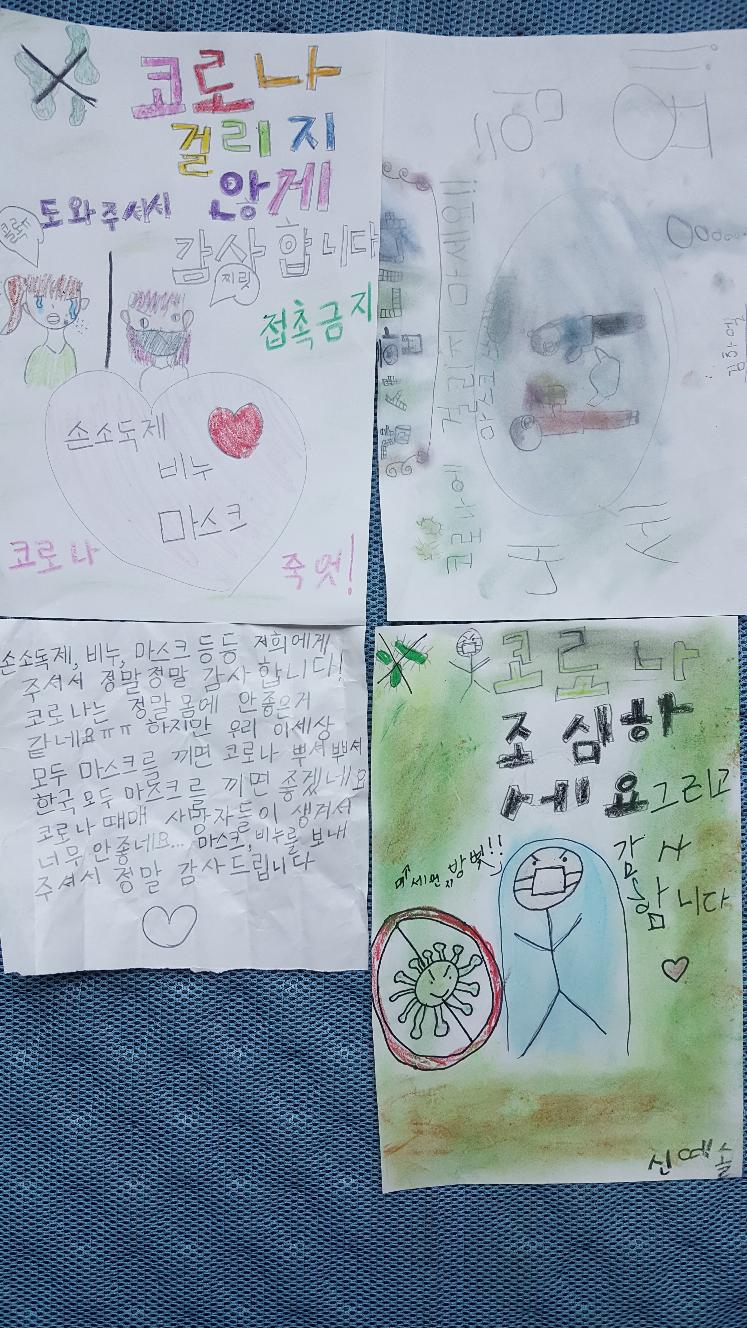 코로나
걸리지
않게
도와주샤서
감사합니다
콜록
찌릿
접촉금지
손소독제
비누
마스크
코로나
죽엇!
코로나에
걸리지 마세요!!
마스크
김하엘
손소독제, 비누, 마스크 등등 저희에게
주셔서 정말정말 감사합니다!
코로나는 정말 몸에 안좋은거
같네요ㅠㅠ 하지만 우리 이세상
모두 마스크를 끼면 코로나 뿌셔뿌셔
한국모두 마스크를 끼면 좋겠네요
코로나 때매 사망자들이 생겨서
너무 안좋네요... 마스크, 비누를 보내
주셔서 정말 감사드립니다
코로나
조심하
세요그리고
감사
합니다
미세먼지 방벽!!
신예솔